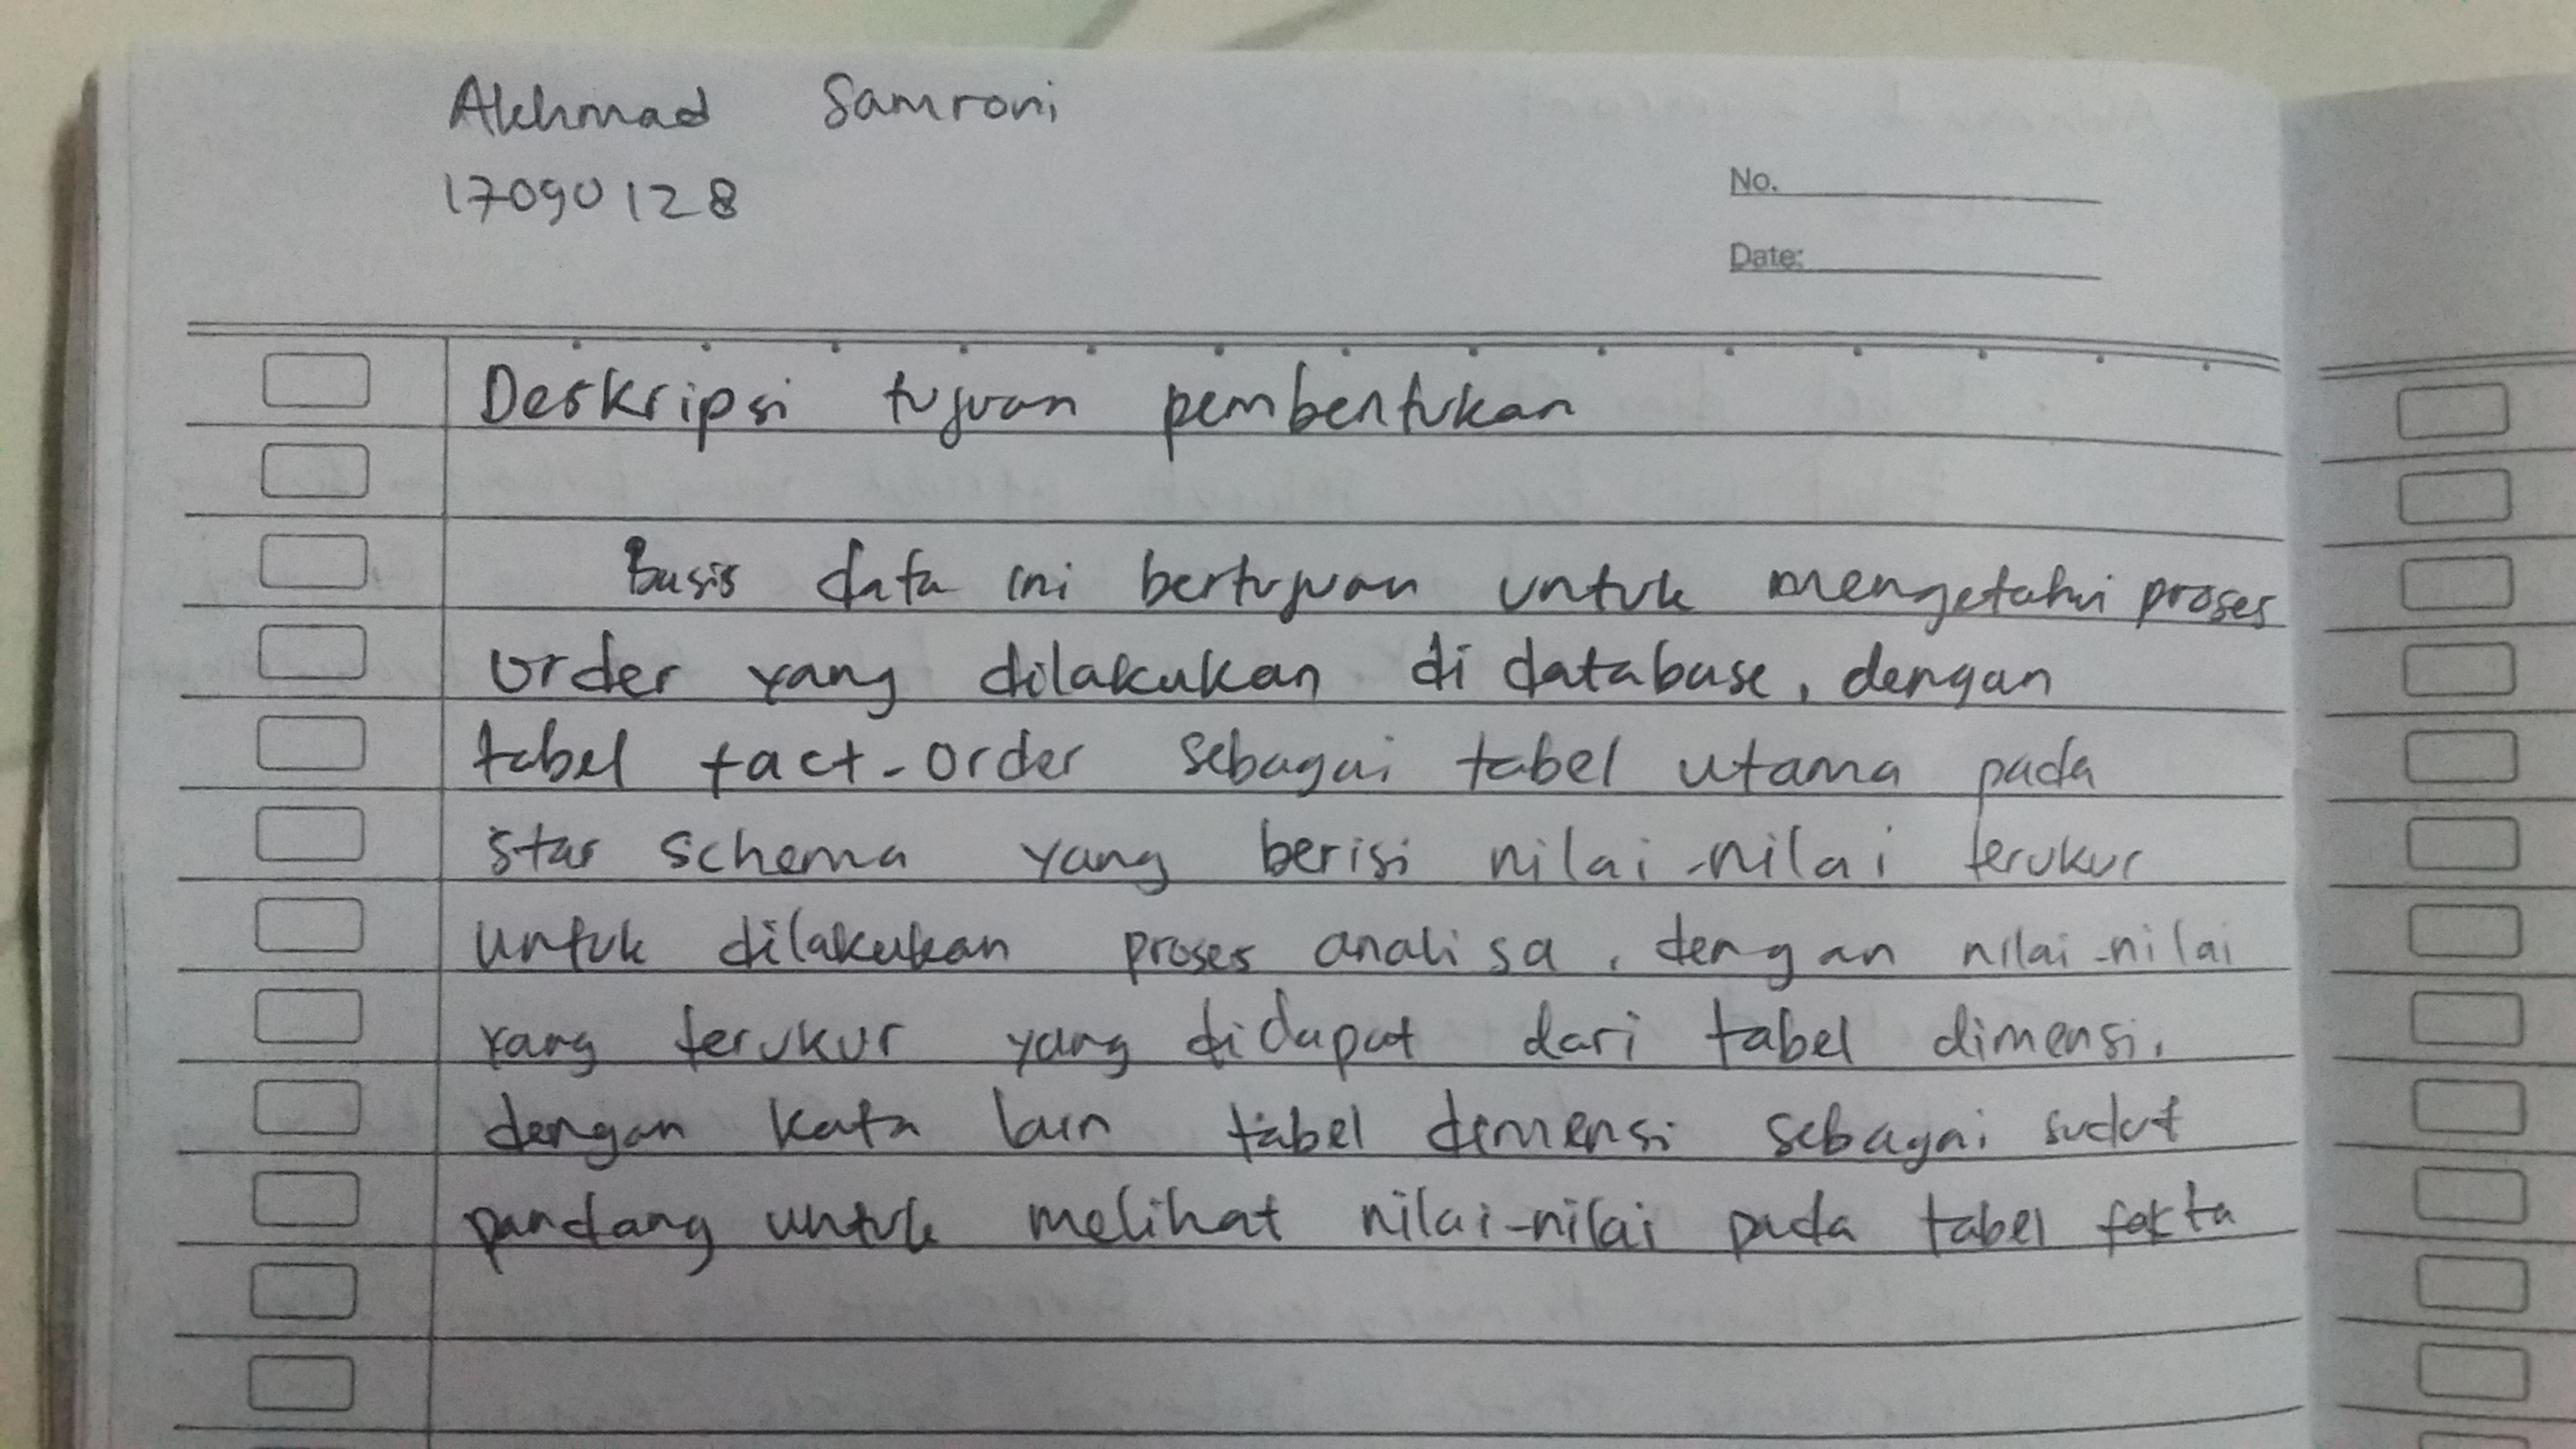 Akhmad Samroni
17090128
No.
Date:
Deskripsi tujuan pembentukan
Basis data ini bertujuan untuk mengetahui proses
order yang dilakukan di database, dengan
tabel fact-order sebagai tabel utama pada
star schema yang berisi nilai-nilai terukur
untuk dilakukan proses analisa, dengan nilai-nilai
yang terukur yang didapat dari tabel dimensi.
dengan kata lain tabel dimensi sebagai sudut
pandang untuk melihat nilai-nilai pada tabel fakta